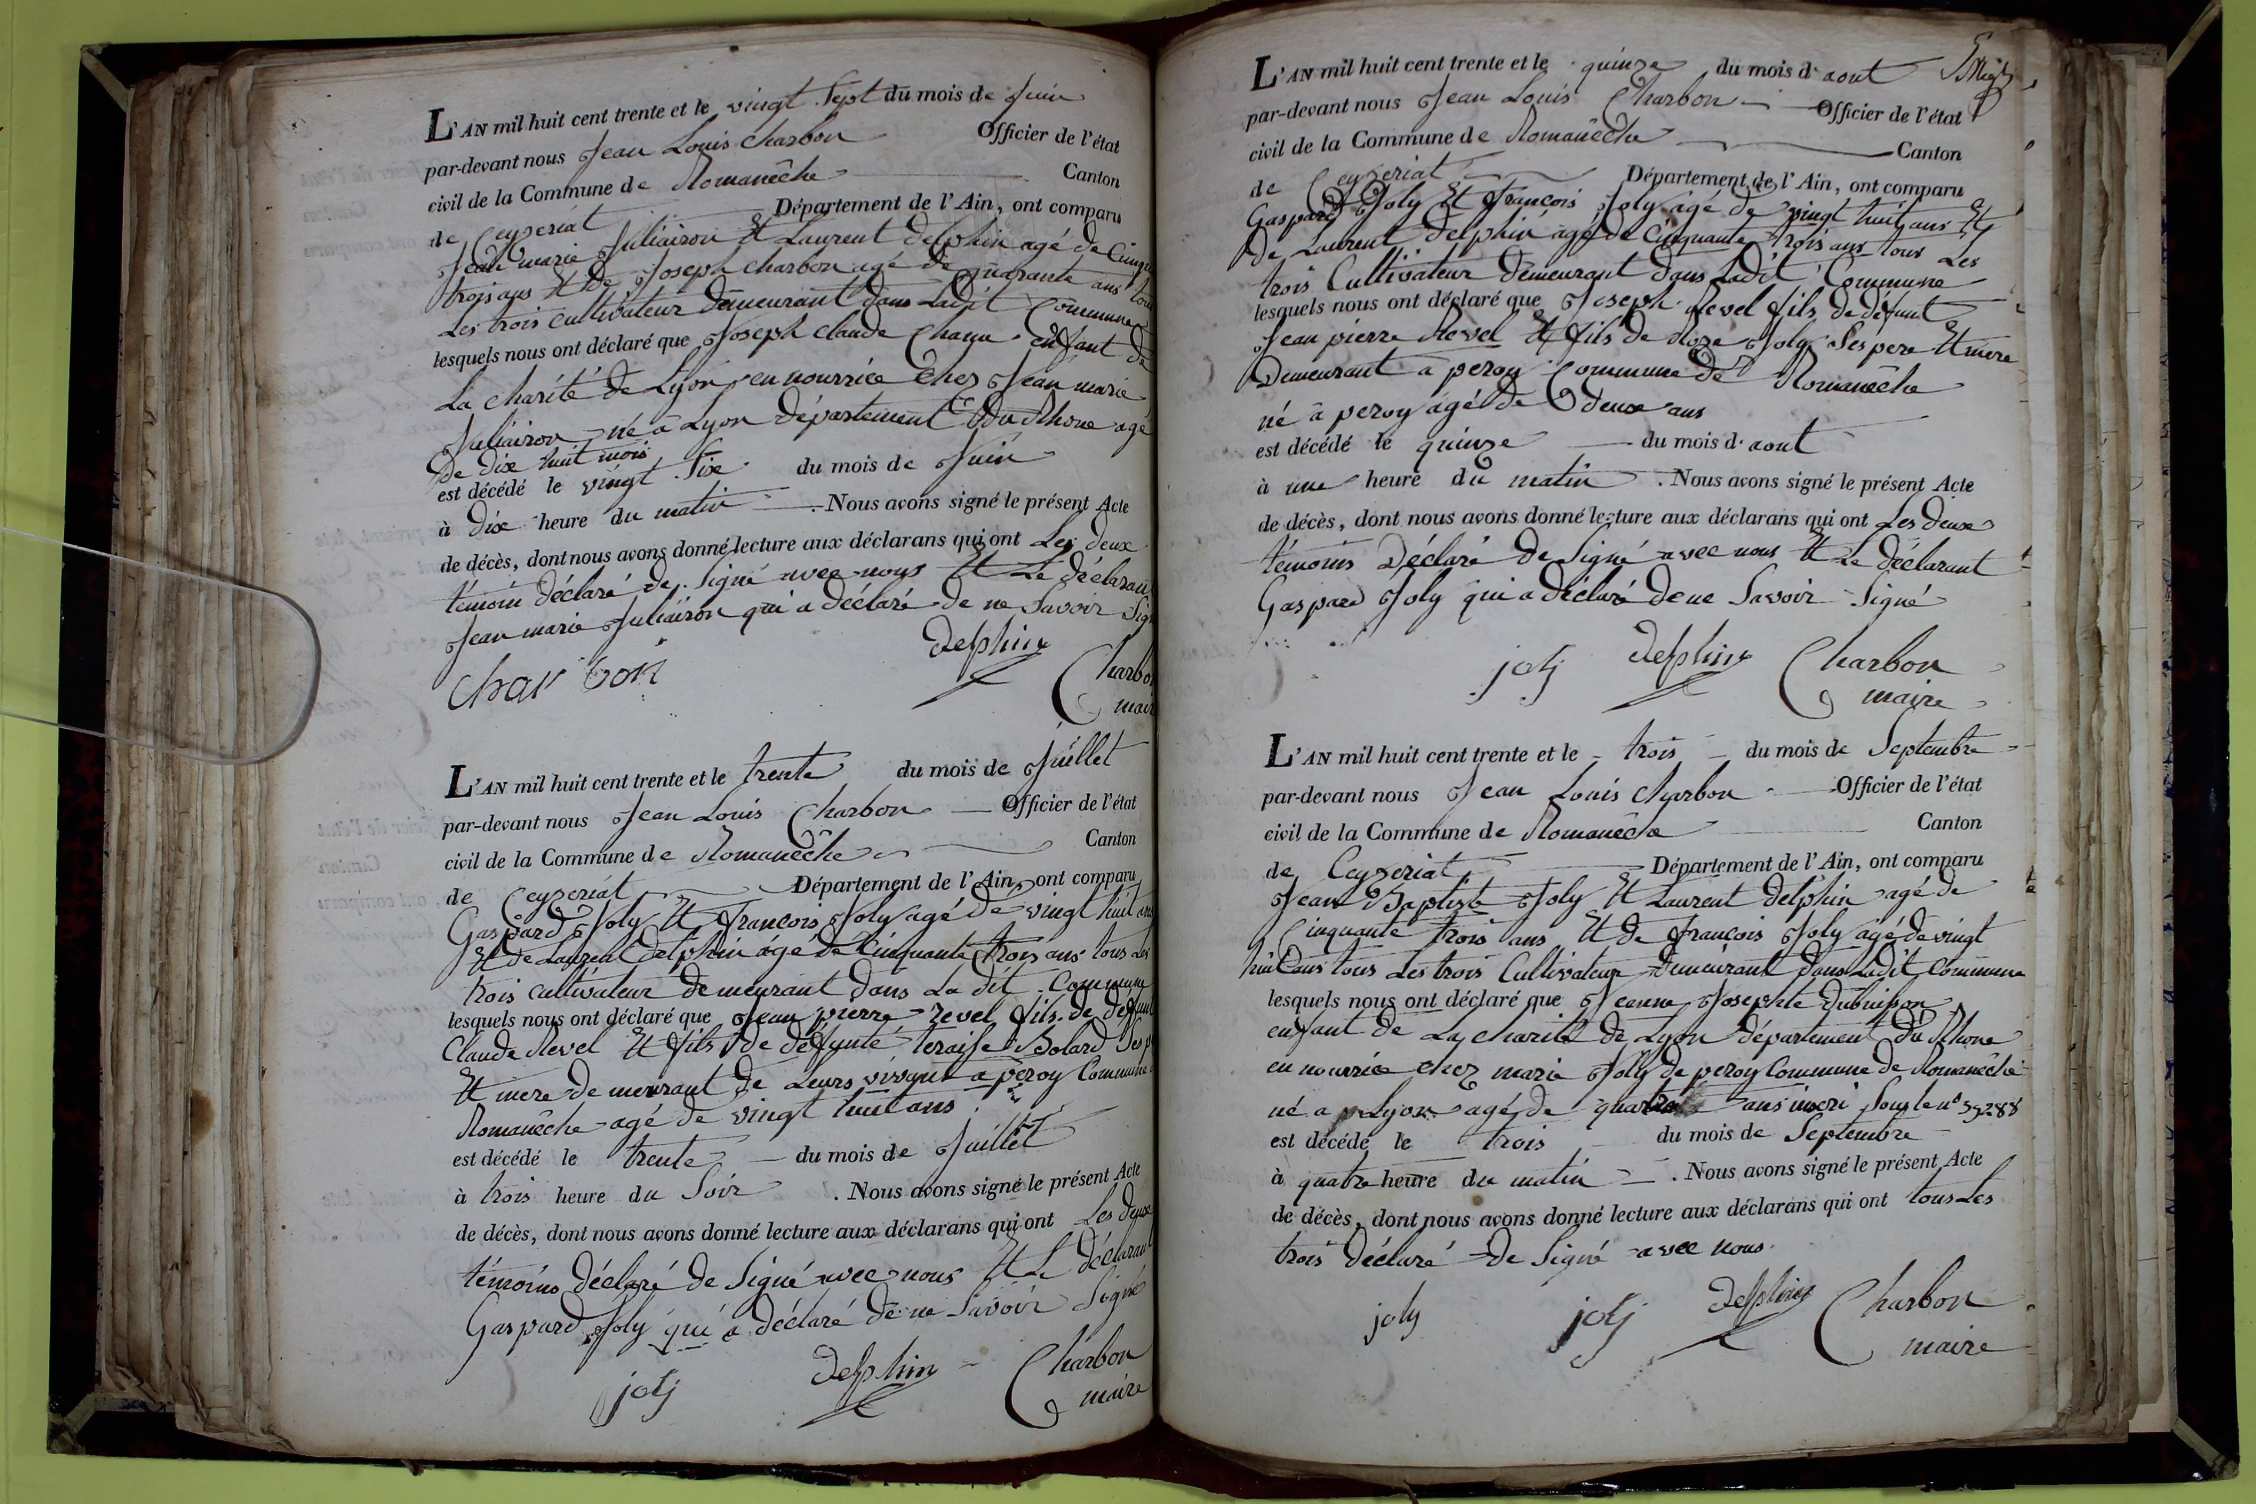 L'AN mil huit cent trente et le vingt Sept du mois de Juin
par-devant nous Jean Louis Charbon Officier de l'état
civil de la Commune de Romanêche Canton
de Ceyzeriat Département de l'Ain, ont comparu
Jean marie Juliairon Et Laurent delphin agé de Cinqu
trois ans Et de Joseph charbon agé de quarante ans tous
Les trois cultivateur demeurant dans Ladit Commune
lesquels nous ont déclaré que Joseph claude Chanu enfant de
La charité de Lyon en nourrice Chez Jean marie
Juliairon né a Lyon département du Rhone agé
De dix huit mois
est décédé le vingt Six du mois de Juin
à dix heure du matin . Nous avons signé le présent Acte
de décès, dont nous avons donné lecture aux déclarans qui ont Les deux
témoin déclaré de Signé avec nous Et Le déclarant
Jean marie Juliairon qui a déclaré de ne Savoir Sig
charbon delphin Charbon
maire
L'AN mil huit cent trente et le trente du mois de Juillet
par-devant nous Jean Louis Charbon Officier de l'état
civil de la Commune de Romanêche Canton
de Ceyzeriat Département de l'Ain, ont comparu
Gaspard Joly Et François Joly agé de vingt huit ans
Et de Laurent Delphin agé de Cinquante trois ans tous Les
trois cultivateur demeurant dans La dit Commune
lesquels nous ont déclaré que Jean pierre revel fils de défunt
Claude Revel Et fils de défunte teraise Bolard Ses p
Et mere demeurant de Leurs vivant a peroy Commune
Romanêche agé de vingt huit ans
est décédé le trente du mois de Juillet
à trois heure du Soir . Nous avons signé le présent Acte
de décès, dont nous avons donné lecture aux déclarans qui ont Les deux
témoins déclaré de Signé avec nous Et Le déclarant
Gaspard Joly qui a déclaré de ne Savoir Signé
joly delphin Charbon
maire
L'AN mil huit cent trente et le quinze du mois d'aout
par-devant nous Jean Louis Charbon Officier de l'état
civil de la Commune de Romanêche Canton
de Ceyzeriat Département de l'Ain, ont comparu
Gaspard Joly Et François Joly agé de vingt huit ans Et
de Laurent delphin agé de Cinquante trois ans tous Les
trois Cultivateur demeurant dans Ladit Commune
lesquels nous ont déclaré que Joseph Revel fils de défunt
Jean pierre Revel Et fils de Roze Joly Ses pere Et mere
Demeurant a peroy Commune de Romanêche
né a peroy agé de deux ans
est décédé le quinze du mois d'aout
à une heure du matin . Nous avons signé le présent Acte
de décès, dont nous avons donné lecture aux déclarans qui ont Les deux
témoins Déclaré de Signé avec nous Et Le déclarant
Gaspard Joly qui a déclaré de ne Savoir Signé
joly delphin Charbon
maire
L'AN mil huit cent trente et le trois du mois de Septembre
par-devant nous Jean Louis charbon Officier de l'état
civil de la Commune de Romanêche Canton
de Ceyzeriat Département de l'Ain, ont comparu
Jean Baptiste Joly Et Laurent Delphin agé de
Cinquante trois ans Et de François Joly agé de vingt
huit ans tous Les trois Cultivateur demeurant dans Ladit Commune
lesquels nous ont déclaré que Jeanne Josephte Dubuisson
enfant de La charité de Lyon département du Rhone
en nourrice chez marie Joly de peroy Commune de Romanêche
né a Lyon agé de quatre ans inscri Sous le n° 39288
est décédé le trois du mois de Septembre
à quatre heure du matin . Nous avons signé le présent Acte
de décès, dont nous avons donné lecture aux déclarans qui ont tous Les
trois déclaré de Signé avec nous
joly joly delphin Charbon
maire